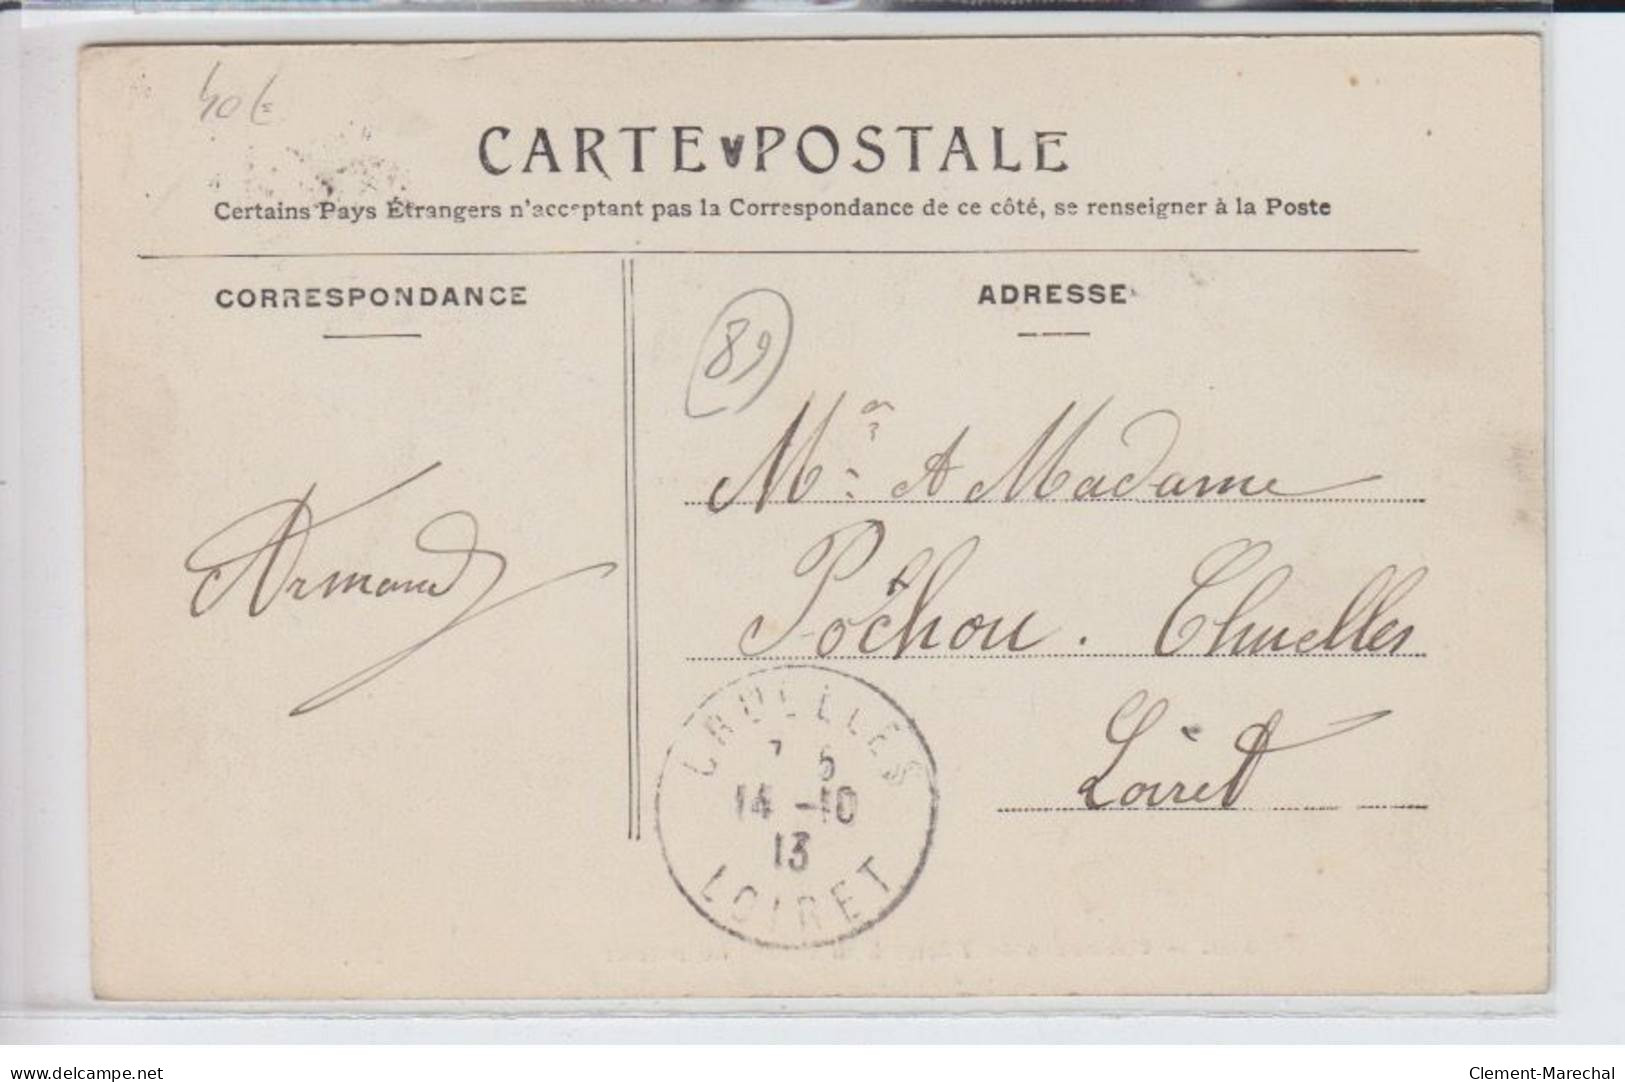 40€
CARTE POSTALE
Certains Pays Étrangers n'acceptant pas la Correspondance de ce côté, se renseigner à la Poste
CORRESPONDANCE
ADRESSE
89
Mr et Madame
Pochon. Thuelles
Loiret
Armand
7 5
14 -10
13
LOIRET
www.delcampe.net
Clement-Marechal